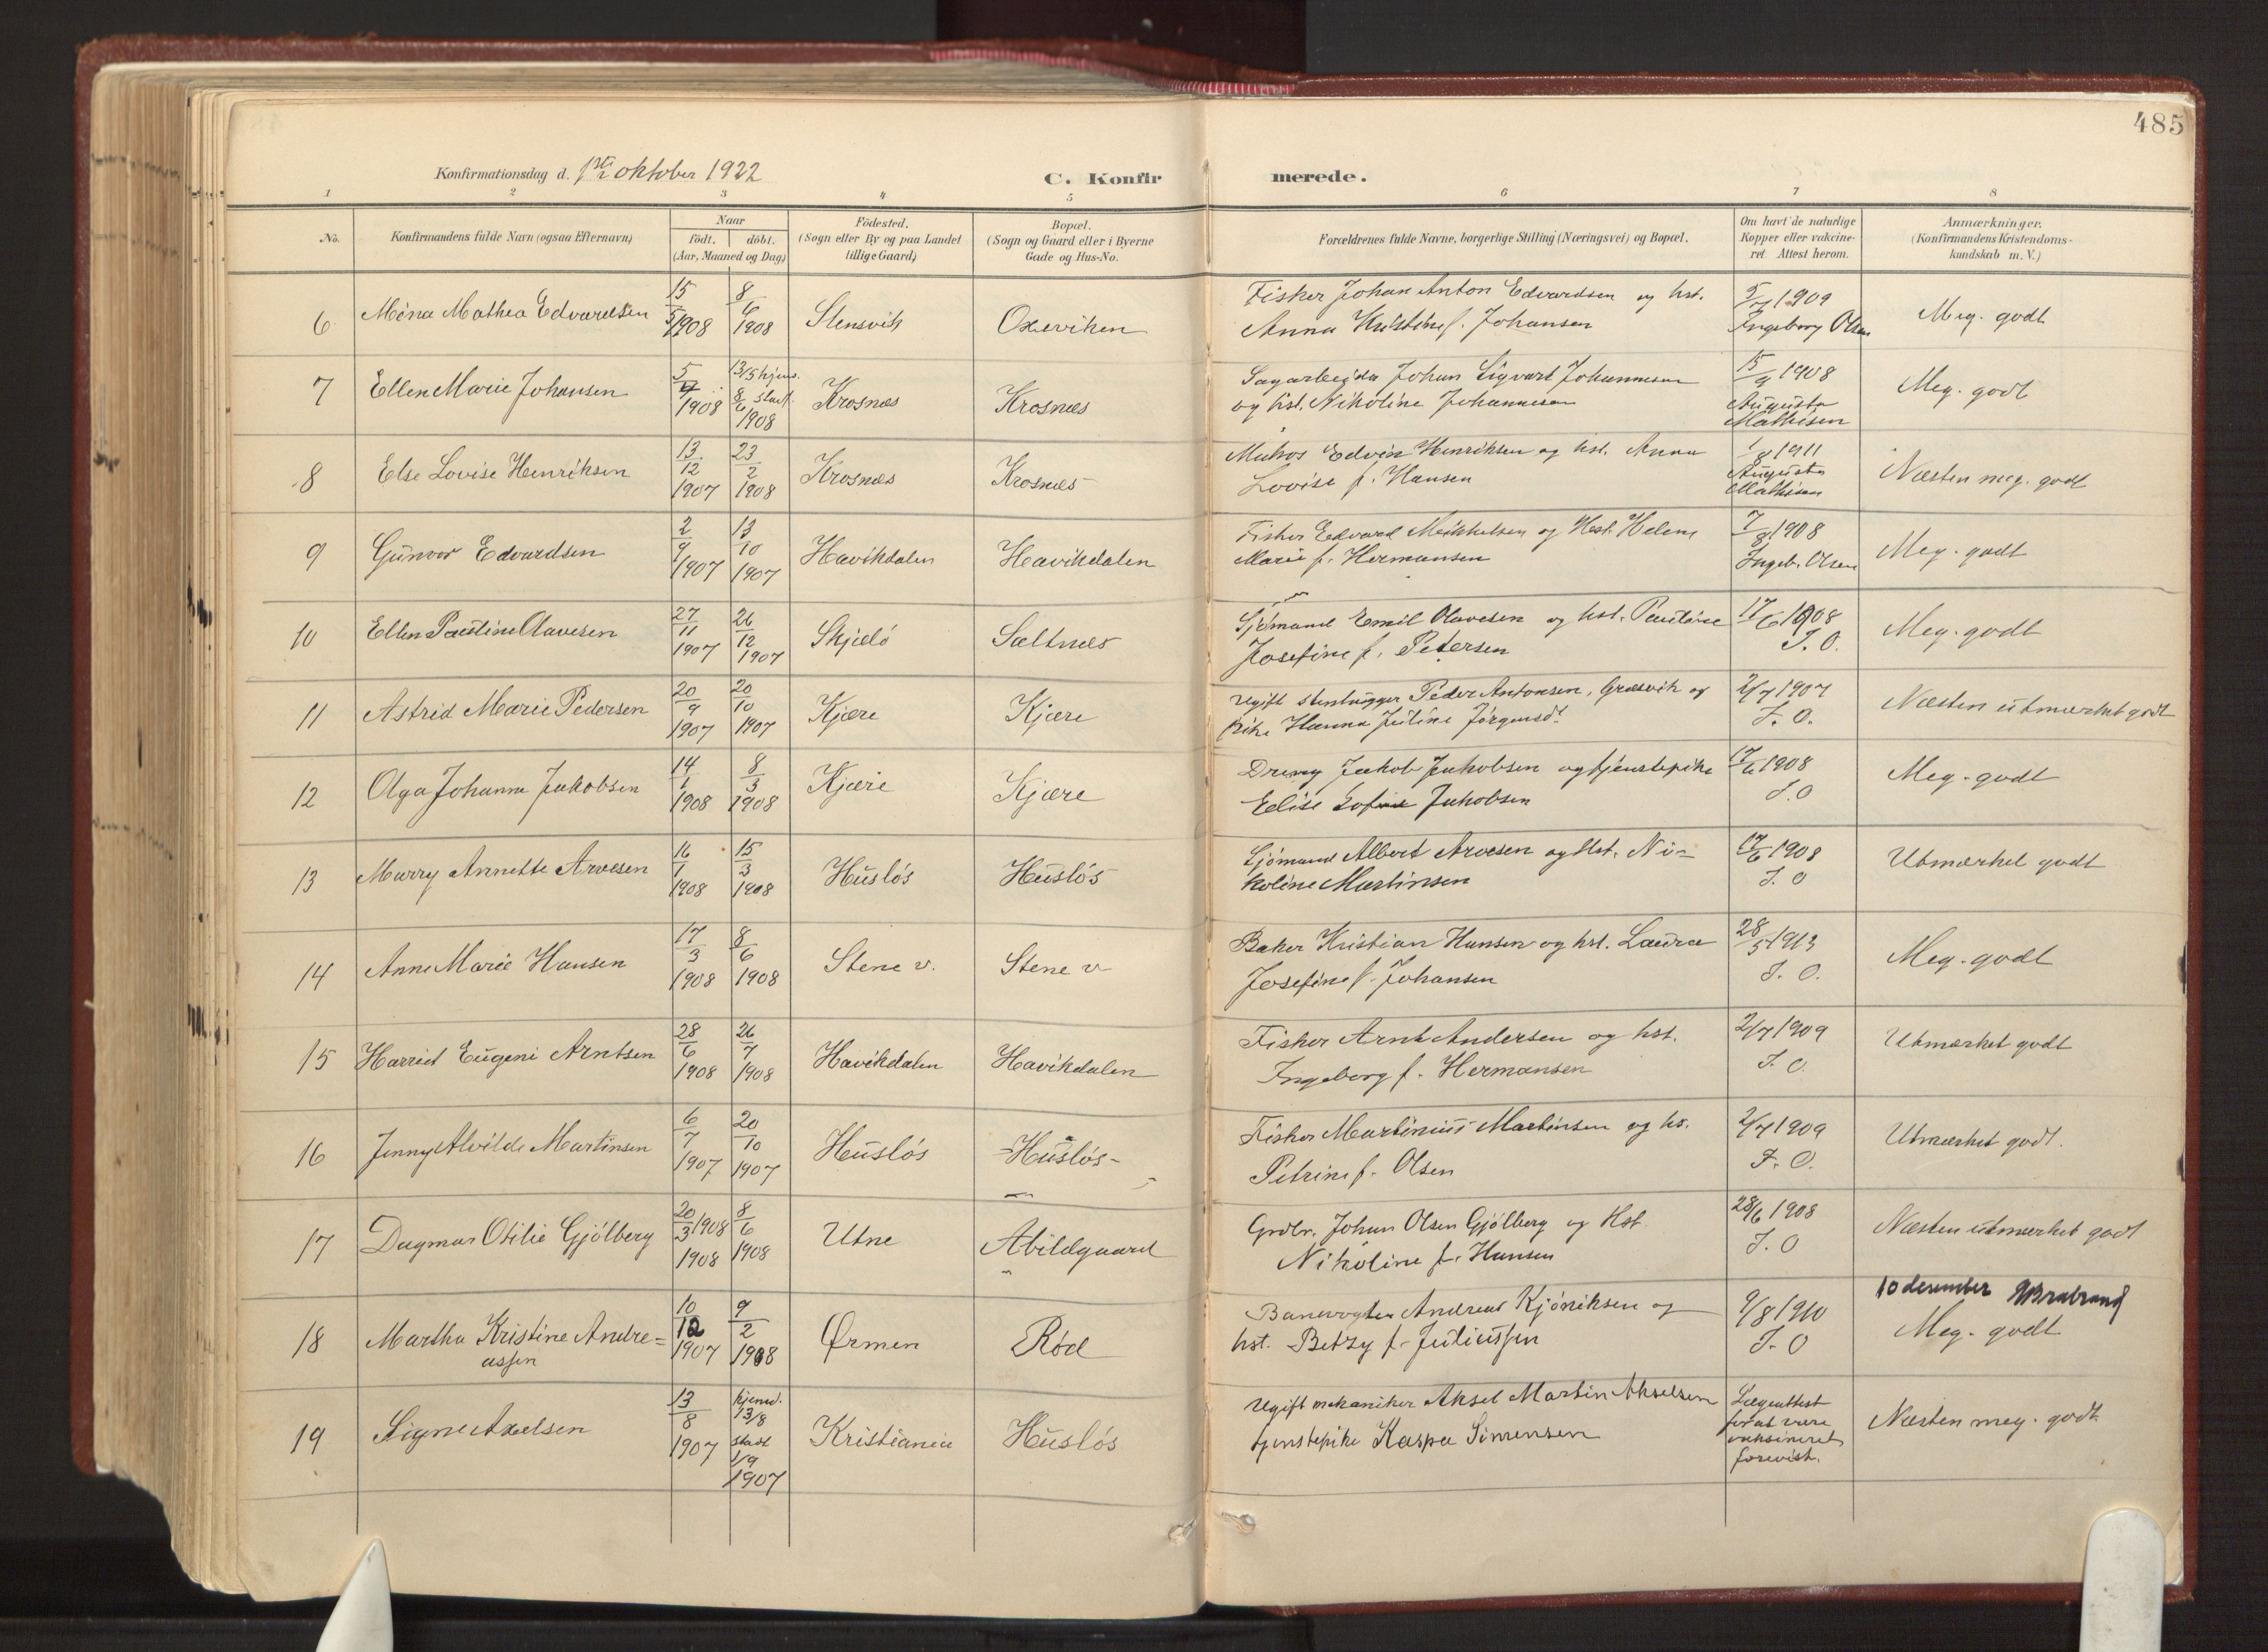 485
Konfirmationsdag d. 1ste oktober 1922
C. Konfirmerede.
1 2 3 4 5 6 7 8
No.
Konfirmandens fulde Navn (ogsaa Efternavn)
Naar
födt. döbt.
(Aar, Maaned og Dag)
Födested.
(Sogn eller By og paa Landet
tillige Gaard)
Bopæl.
(Sogn og Gaard eller i Byerne
Gade og Hus-No.
Forældrenes fulde Navne, borgerlige Stilling (Næringsvei) og Bopæl.
Om havt de naturlige
Kopper eller vakcine-
ret. Attest herom.
Anmærkninger.
(Konfirmandens Kristendoms-
kundskab m. V.)
6 Mathea Edvardsen 15/5 1908 8/6 1908 Stensvik Oxeviken
Fisker Johan Anton Edvardsen og hst.
Anna Kristine f. Johansen
5/7 1909
Ingeborg Olsen
Meg. godt
7 Ellen Marie Johansen 5/ 1908 13/5 hjem. 8/6 stadf. 1908 Krosnæs Krosnæs
Sagarbeider Johan Sigvart Johannesen
og hst. Nikoline Johannesen
15/9 1908
Augusta
Mathisen
Meg. godt
8 Else Lovise Henriksen 13/12 1907 23/2 1908 Krosnæs Krosnæs
Edvin Henriksen og hst. Anna
Lovise f. Hansen
/8 1911
Augusta
Mathisen
Næsten meg. godt
9 Gunvor Edvardsen 2/9 1907 13/10 1907 Havikdalen Havikdalen
Fisker Edvard Mikkelsen og Hst. Helene
Marie f. Hermansen
7/8 1908
Ingeb. Olsen
Meg. godt
10 Ellen Pauline Olavesen 27/11 1907 26/12 1907 Skjælö Saltnes
Sjömand Emil Olavesen og hst. Pauline
Josefine f. Petersen
17/6 1908
I. O.
Meg. godt
11 Astrid Marie Pedersen 20/9 1907 20/10 1907 Kjære Kjære
Ugift stenhugger Peder Antonsen, Græsvik og
pike Hanna Juline Jörgensdt
2/7 1907
I. O.
Næsten utmærket godt
12 Olga Johanne Jakobsen 14/1 1908 8/3 1908 Kjære Kjære
Dreng Jakob Jakobsen og tjenstepike
Elise Sofie Jakobsen
17/6 1908
I. O
Meg. godt
13 Marry Annette Arvesen 16/1 1908 15/3 1908 Huslös Huslös
Sjömand Albert Arvesen og Hst. Ni-
koline Martinsen
17/6 1908
I. O
Utmærket godt
14 Anne Marie Hansen 17/3 1908 8/6 1908 Stene v. Stene v
Baker Kristian Hansen og hst. Laura
Josefine f. Johansen
28/5 1913
I. O.
Meg. godt
15 Harriet Eugeni Arntsen 28/6 1908 26/7 1908 Havikdalen Havikdalen
Fisker Arnt Andersen og hst.
Ingeborg f. Hermansen
2/7 1909
I. O.
Utmærket godt
16 Jenny Alvilde Martinsen 6/7 1907 20/10 1907 Huslös -Huslös-
Fisker Martinius Martinsen og hs.
Petrine f. Olsen
2/7 1909
I. O.
Utmærket godt.
17 Dagmar Otilie Gjölberg 20/3 1908 1908 8/6 1908 Utne Abildgaard
Grdbr. Johan Olsen Gjölberg og Hst.
Nikoline f. Hansen
28/6 1908
I. O
Næsten utmærket godt
18 Martha Kristine Andre=
assen 10/12 1907 9/2 1908 Ørmen Röd
Banevogter Andreas Kjöniksen og
hst. Betzy f. Juliussen
9/8 1910
I. O
10 desember
Meg. godt
19 Signe Axelsen 13/8 1907 hjemd. 13/8 stadf 1/9 1907 Kristiania Huslös
Ugift mekaniker Aksel Martin Akselsen
tjenstepike Kaspa Simensen
Lægeattest
for at være
vaksineret
forevist.
Næsten meg. godt